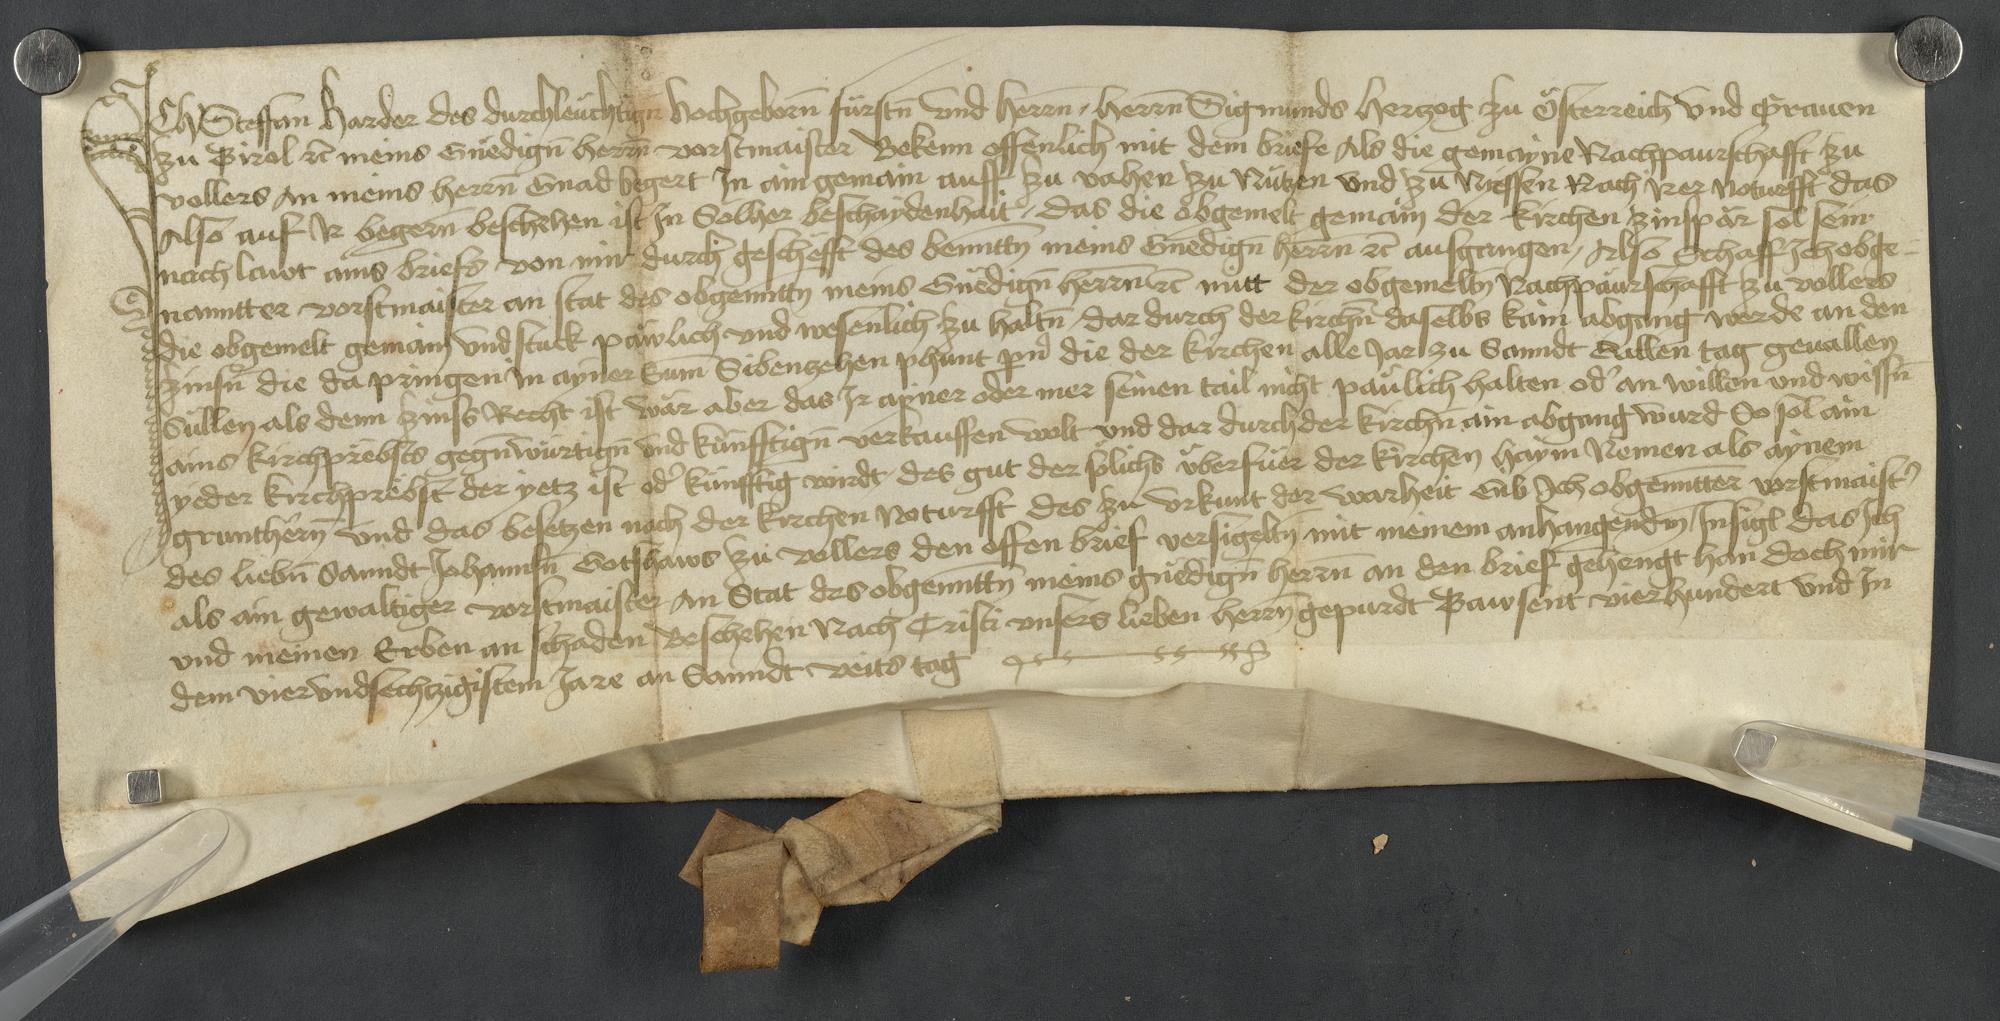 Ich Steffan Harder des durchleuchtign hochgeborn fürstn und herrn, herrn Sigmunds hertzog zu Österreich und Graven
zu Tirol etc meins Gnedign herrn vorstmaister Bekenn offenlich mit dem briefe Als die gemayne Nachpaurschafft zu
vollers An meins herrn Gnad begert In ain gemain auff zu vahen zu Nützen und zu Niessen Nach Irer Noturfft das
Also auf Ir begern beschehen ist In Solher beschaydenhait, das die obgemelt gemain der kirchen zinspär sol sein
nach lawt ains briefs von mir durch geschefft des benntn meins Gnedign herrn etc ausgangen, Also Schaff Ich obge-
nanntter vorstmaister an stat des obgenntn meins Gnedign herrn etc mitt der obgemeltn Nachpäurschafft zu vollers
die obgemelt gemain und stuck päwlich und wesenlich zu haltn, dar durch der kirchn daselbs kain abgang werde an den
zinsn die da pringen In ayner Sum Sibenzehen phunt pn die der kirchen alle Jar zu Sanndt Gallen tag gevallen
Sullen als denn zinss Recht ist wär aber das Ir ayner oder mer seinen tail nicht päulich halten od an willen und wissn
ains kirchprebsts gegnwürtign und künfftign verkauffen wolt und dar durch der kirchn ain abgang wurd So sol ain
yeder kirchprebst der yetz ist od künfftig wirdt, des gut der sölichs überfüer der kirchen haym Nemen als aynem
gruntherrn und das besetzen nach der kirchen Noturfft des zu urkunt der warheit Gib Ich obgenntter vorstmaist
des liebn Sanndt Johannsn Gotshaws zu vollers den offen brief versigeltn mit meinem anhangendn Insigl das Ich
als ain gewaltiger vorstmaister An Stat des obgenntn meins gnedign herrn an den brief gehengt han doch mir
und meinen Erben an schaden Beschehen Nach Cristi unsers lieben herrn gepurdt Tawsent vierhundert und In
dem vierundsechtzigistem Jare an Sanndt veits tag